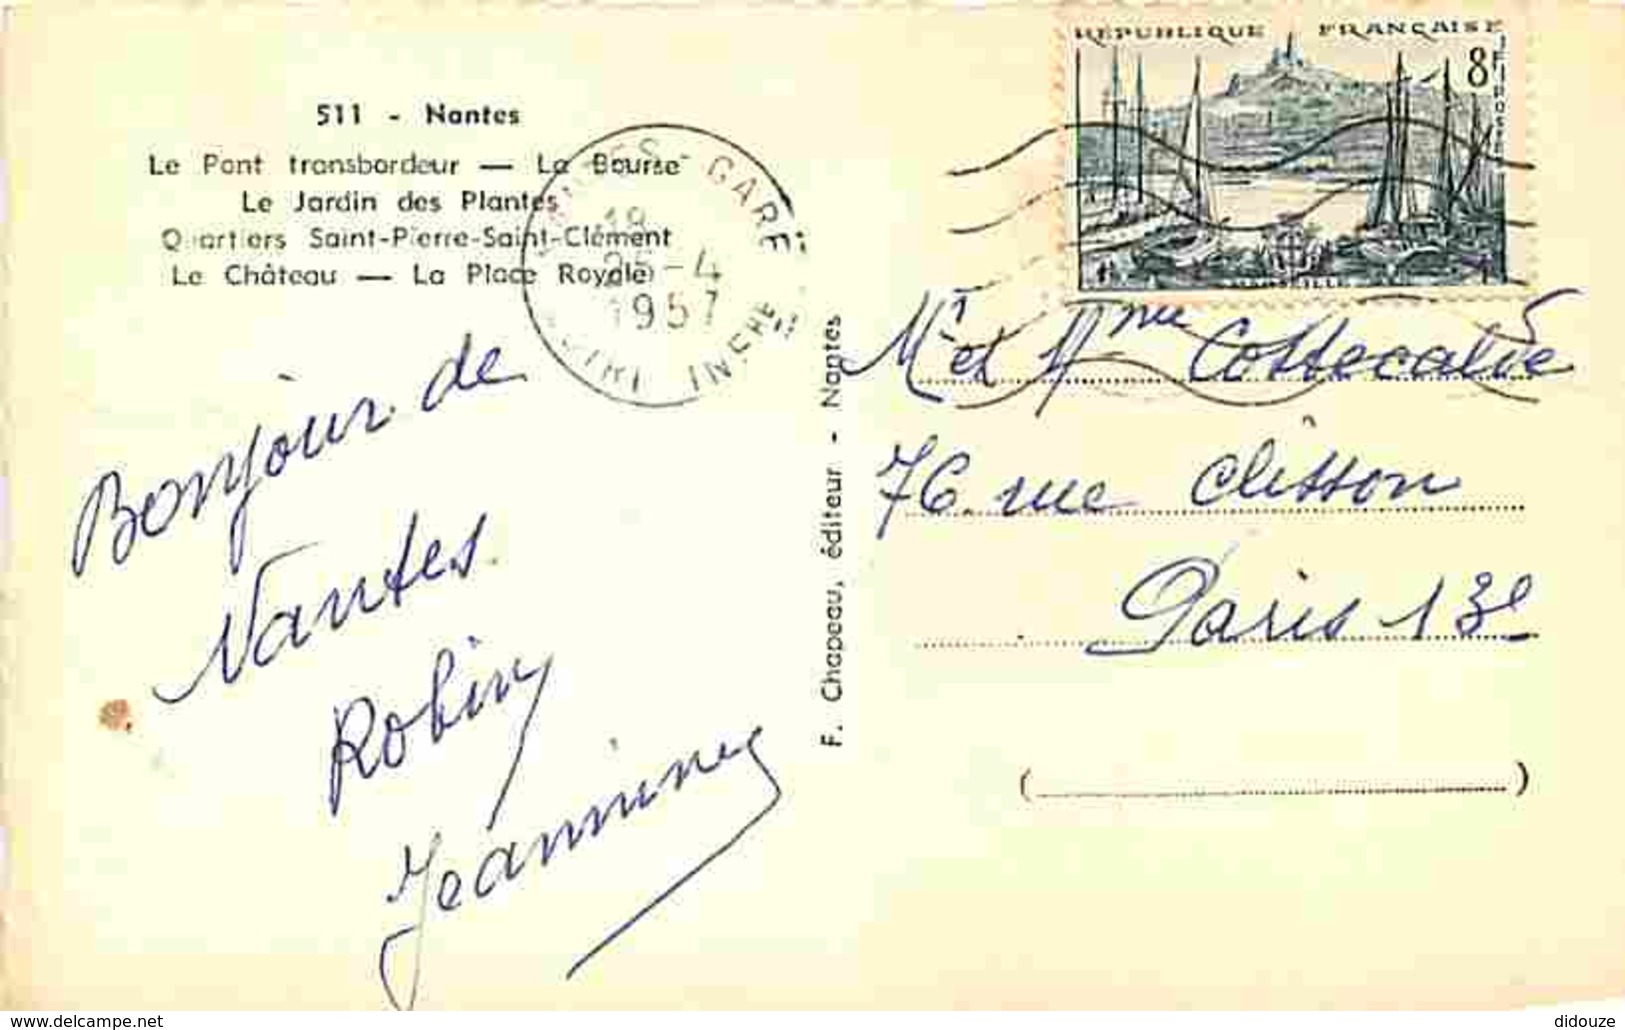 511 - Nantes
Le Pont transbordeur — La Bourse
Le Jardin des Plantes
Quartiers Saint-Pierre-Saint-Clément
Le Château — La Place Royale
NANTES - GARE
18
25-4
1957
LOIRE INFRE
RÉPUBLIQUE FRANÇAISE
8F
POSTES
MARSEILLE
Bonjour de
Nantes
Robin
Jeannine
F. Chapeau, éditeur - Nantes
Mr et Mme Costecalde
76 rue Clisson
Paris 13e
(
)
www.delcampe.net
didouze